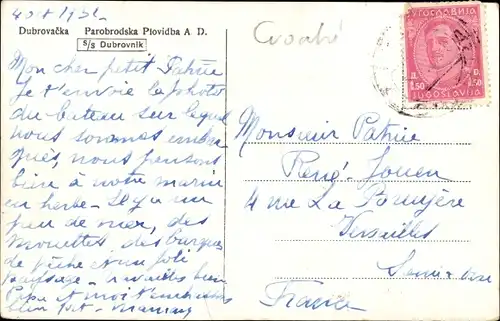 Dubrovačka Parobrodska Plovidba A D.
S/S Dubrovnik
Croatie
ЈУГОСЛАВИЈА
Д. D.
1.50 1.50
JUGOSLAVIJA
Mon cher petit Patrice
Je t'envoie la photo
du bateau sur lequel
nous sommes embar
qués, nous pensons
bien à notre marin
en herbe. Il y a un
peu de mer, des
mouettes, des barques
de pêche et un joli
paysage - travailles bien
Papa et moi t'embrassons
bien fort - Maman
Monsieur Patrice
René-Jouen
4 rue La Bruyère
Versailles
Seine et Oise
France